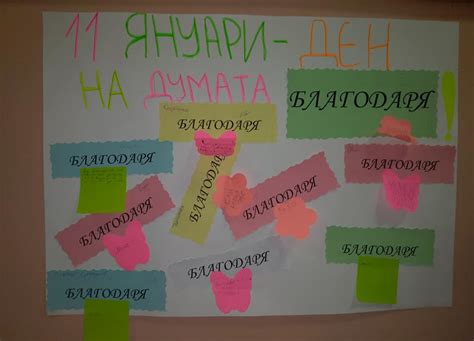 11 ЯНУАРИ - ДЕН
НА ДУМАТА
БЛАГОДАРЯ!
БЛАГОДАРЯ
БЛАГОДАРЯ
БЛАГОДАРЯ
БЛАГОДАРЯ
БЛАГОДАРЯ
БЛАГОДАРЯ
БЛАГОДАРЯ
БЛАГОДАРЯ
БЛАГОДАРЯ